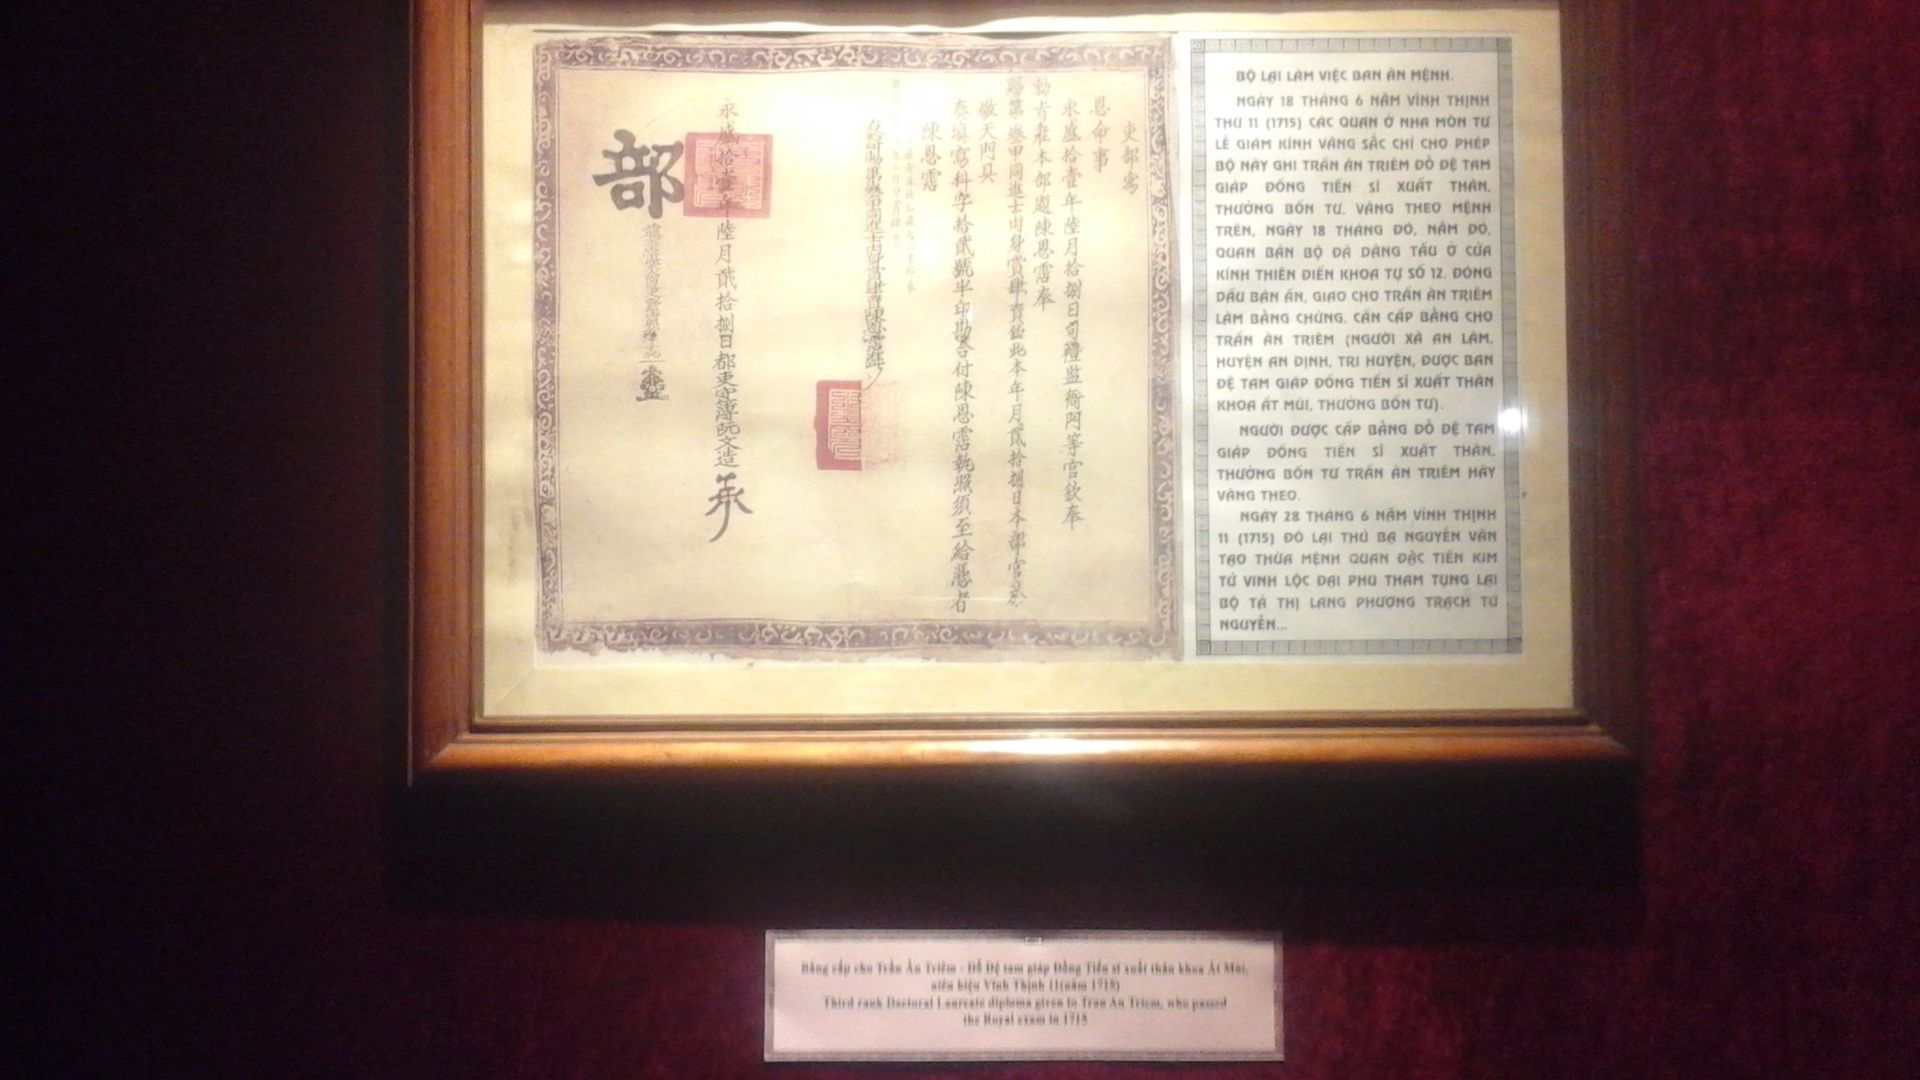 吏部為
恩命事
永盛拾壹年陸月拾捌日司禮監衙門等官欽奉
勅旨 本部題陳恩霑奉
賜第叁甲同進士出身賞肆資 此本年月貳拾捌日本部官於
敬天門具
奏填寫科字拾貳號半印勘合付陳恩霑執照須至給憑者
陳恩霑
賜第叁甲同進士出身賞肆資陳恩霑
永盛拾壹年陸月貳拾捌日都吏 簿阮文造 承
部
BỘ LẠI LÀM VIỆC BAN ÂN MỆNH.
NGÀY 18 THÁNG 6 NĂM VĨNH THỊNH
THỨ 11 (1715) CÁC QUAN Ở NHA MÔN TƯ
LỄ GIÁM KÍNH VÂNG SẮC CHỈ CHO PHÉP
BỘ NÀY GHI TRẦN ÂN TRIÊM ĐỖ ĐỆ TAM
GIÁP ĐỒNG TIẾN SĨ XUẤT THÂN,
THƯỞNG BỐN TƯ. VÂNG THEO MỆNH
TRÊN, NGÀY 18 THÁNG ĐÓ, NĂM ĐÓ,
QUAN BẢN BỘ ĐÃ DÂNG TẤU Ở CỬA
KÍNH THIÊN ĐIỀN KHOA TỰ SỐ 12, ĐÓNG
DẤU BÁN ẤN, GIAO CHO TRẦN ÂN TRIÊM
LÀM BẰNG CHỨNG. CẦN CẤP BẰNG CHO
TRẦN ÂN TRIÊM (NGƯỜI XÃ AN LÂM,
HUYỆN AN ĐỊNH, TRI HUYỆN, ĐƯỢC BAN
ĐỆ TAM GIÁP ĐỒNG TIẾN SĨ XUẤT THÂN
KHOA ẤT MÙI, THƯỞNG BỐN TƯ).
NGƯỜI ĐƯỢC CẤP BẰNG ĐỖ ĐỆ TAM
GIÁP ĐỒNG TIẾN SĨ XUẤT THÂN,
THƯỞNG BỐN TƯ TRẦN ÂN TRIÊM HÃY
VÂNG THEO.
NGÀY 28 THÁNG 6 NĂM VĨNH THỊNH
11 (1715) ĐÔ LẠI THỦ BẠ NGUYỄN VĂN
TẠO THỪA MỆNH QUAN ĐẶC TIẾN KIM
TỬ VINH LỘC ĐẠI PHU THAM TỤNG LẠI
BỘ TẢ THỊ LANG PHƯƠNG TRẠCH TỬ
NGUYỄN...
Bằng cấp cho Trần Ân Triêm : Đỗ Đệ tam giáp Đồng Tiến sĩ xuất thân khoa Ất Mùi,
niên hiệu Vĩnh Thịnh 11(năm 1715)
Third rank Doctoral Laureate diploma given to Tran An Triem, who passed
the Royal exam in 1715